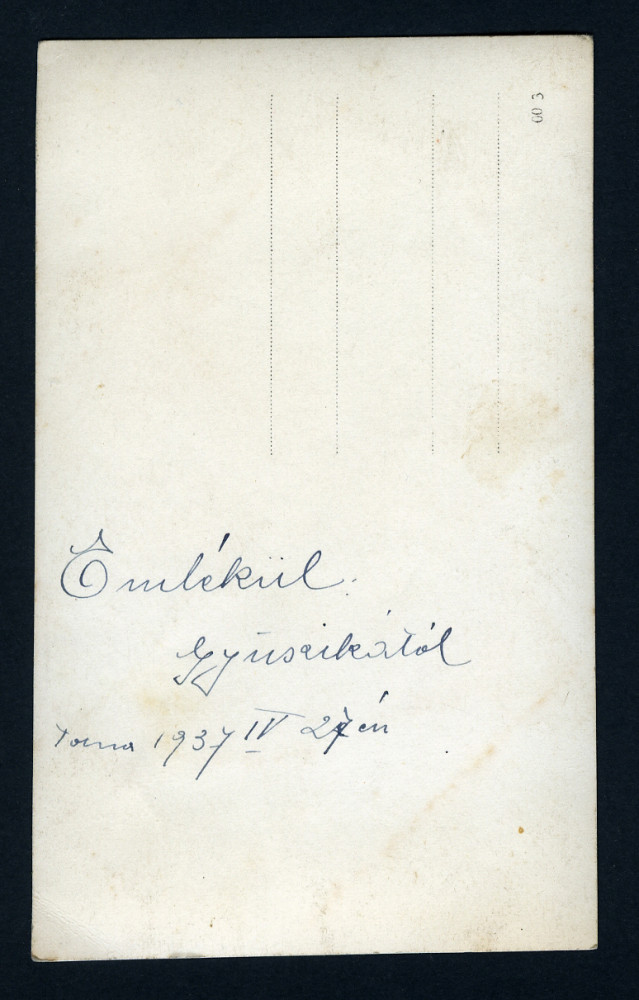 Emlékül.
Gyuszikától
Torna 1937 IV 27 én